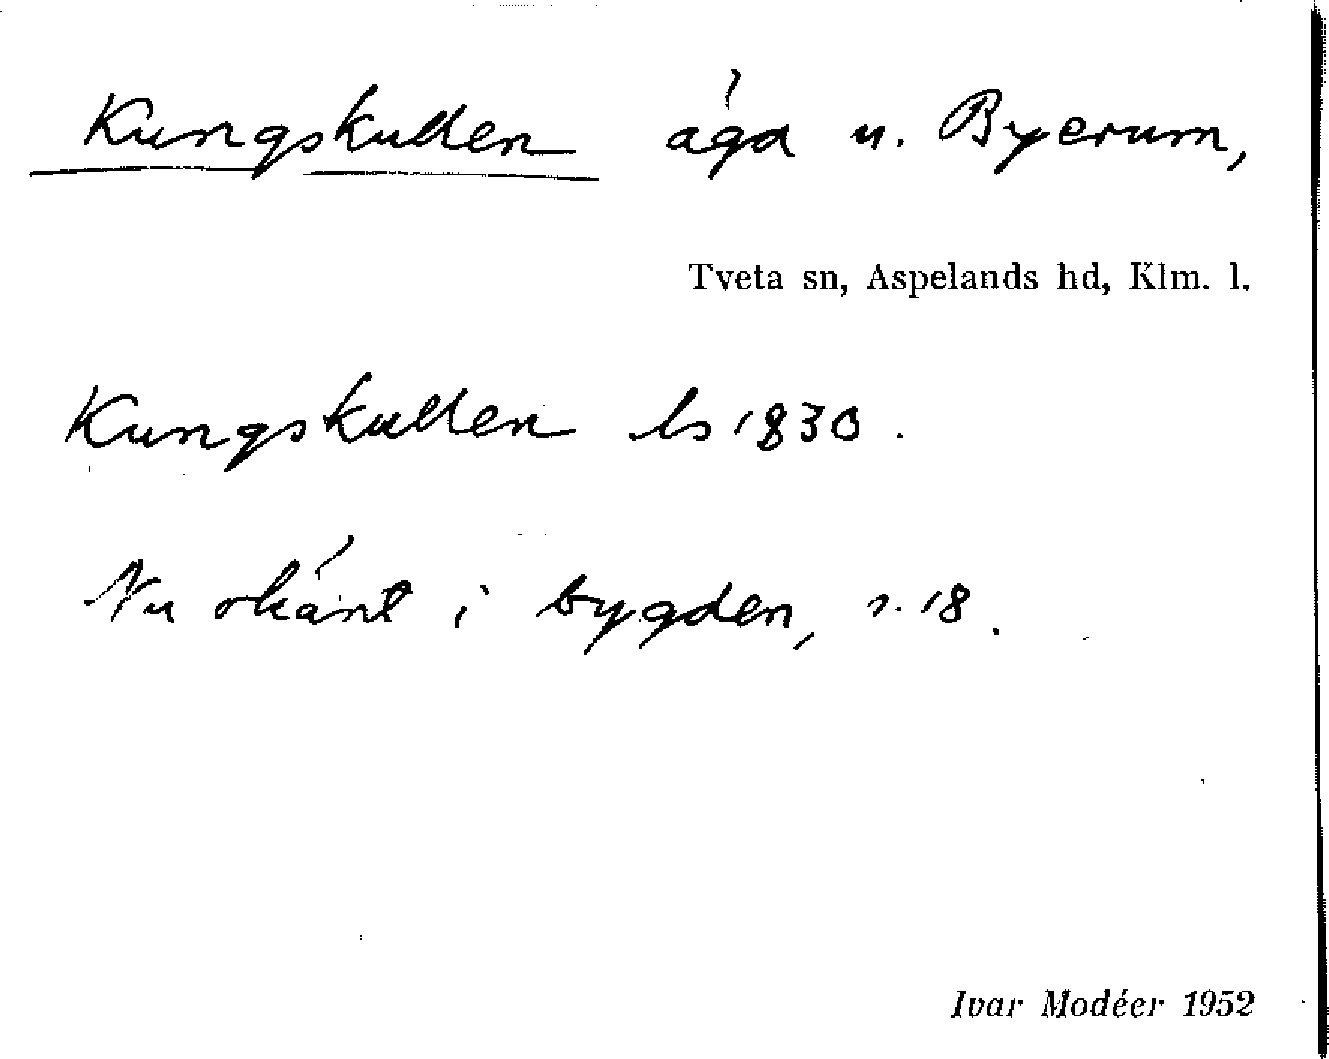 Kungskullen ägd u. Byerum,
Tveta sn, Aspelands hd, Klm. l.
Kungskullen ls 1830.
Nu okänt i bygden, s. 18.
Ivar Modéer 1952